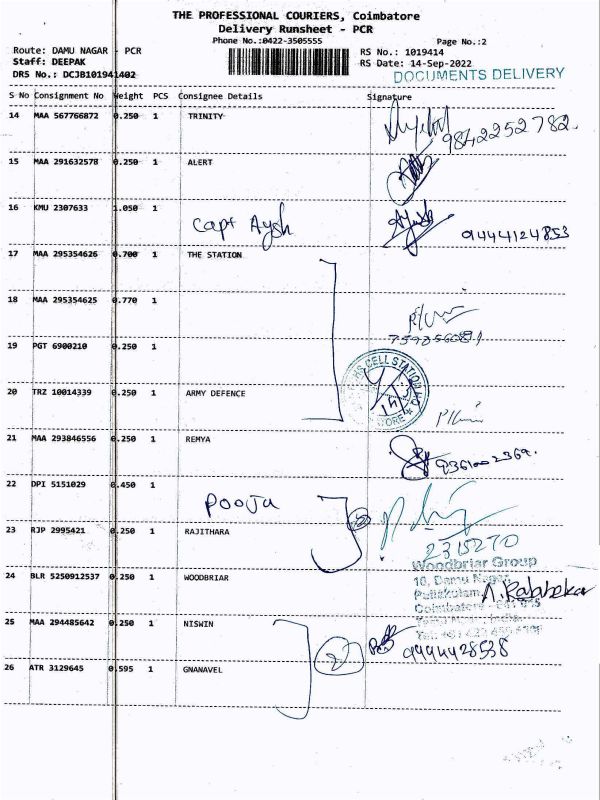 THE PROFESSIONAL COURIERS, Coimbatore
Delivery Runsheet - PCR
Phone No.:0422-3505555
Page No.:2
Route: DAMU NAGAR - PCR
RS No.: 1019414
Staff: DEEPAK
RS Date: 14-Sep-2022
DRS No.: DCJB101941402
DOCUMENTS DELIVERY
S No Consignment No Weight PCS Consignee Details Signature
14 MAA 567766872 0.250 1 TRINITY
9842252782
15 MAA 291632578 0.250 1 ALERT
16 KMU 2307633 1.050 1
Capt Aysh
9444124853
17 MAA 295354626 0.700 1 THE STATION
18 MAA 295354625 0.770 1
19 PGT 6900210 0.250 1
CELL STATION HQ
20 TRZ 10014339 0.250 1 ARMY DEFENCE
21 MAA 293846556 0.250 1 REMYA
9361002369.
22 DPI 5151029 0.450 1
Pooja
23 RJP 2995421 0.250 1 RAJITHARA
2315270
Woodbriar Group
24 BLR 5250912537 0.250 1 WOODBRIAR
10, Damu Nagar
Puliakulam
A. Rajahekar
Coimbatore
25 MAA 294485642 0.250 1 NISWIN
2
9444428538
26 ATR 3129645 0.595 1 GNANAVEL